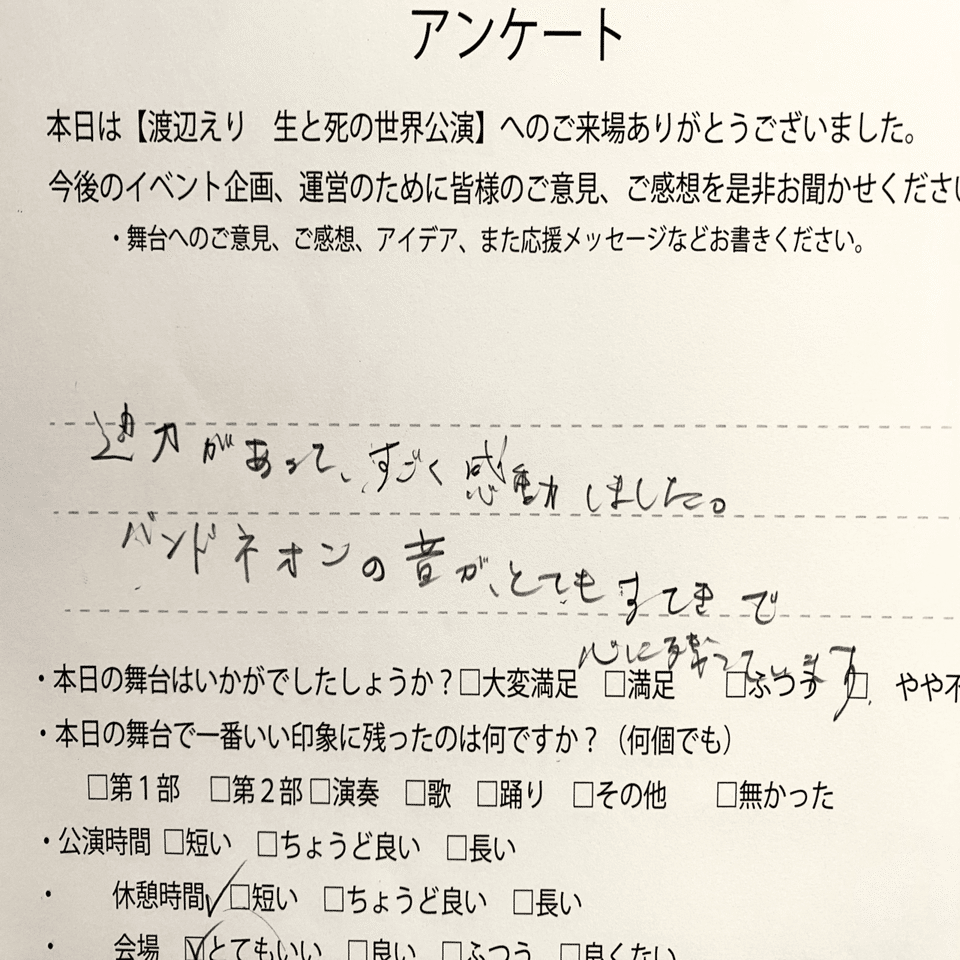 アンケート
本日は【渡辺えり　生と死の世界公演】へのご来場ありがとうございました。
今後のイベント企画、運営のために皆様のご意見、ご感想を是非お聞かせくださ
・舞台へのご意見、ご感想、アイデア、また応援メッセージなどお書きください。
迫力があって、すごく感動しました。
バンドネオンの音が、とてもすてきで
心に残っています。
・本日の舞台はいかがでしたしょうか？□大変満足　□満足　□ふつう　□　やや不
・本日の舞台で一番いい印象に残ったのは何ですか？（何個でも）
□第１部　□第２部 □演奏　□歌　□踊り　□その他　□無かった
・公演時間 □短い　□ちょうど良い　□長い
・　休憩時間✓□短い　□ちょうど良い　□長い
・　会場　☑とてもいい　□良い　□ふつう　□良くない